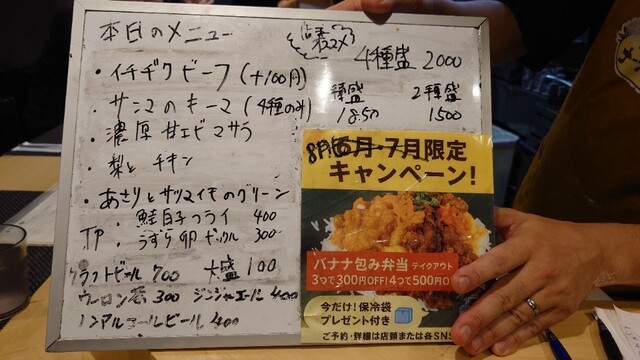 本日のメニュー
オススメ
4種盛 2000
・イチヂクビーフ (+100円)
3種盛 2種盛
・サンマのキーマ (4種のみ)
1850 1500
・濃厚甘エビマサラ
・梨とチキン
・あさりとサツマイモのグリーン
・鮭白子フライ 400
TP.
うずら卵ピックル 300
クラフトビール 700 大盛 100
ウーロン茶 300 ジンジャエール 400
ノンアルコールビール 400
8月 6月・7月限定
キャンペーン!
バナナ包み弁当 テイクアウト
3つで300円OFF!4つで500円O
今だけ!保冷袋
プレゼント付き
ご予約・詳細は店頭または各SNS